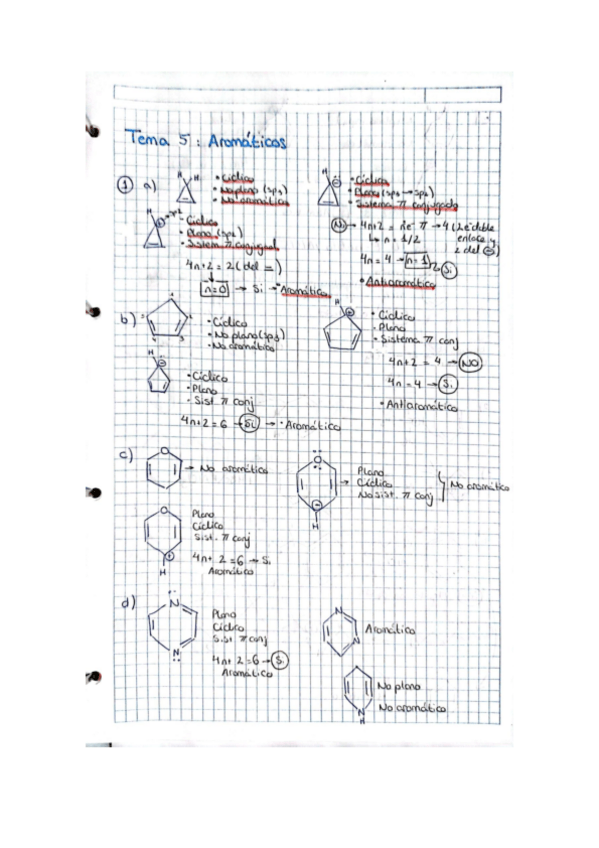 Tema 5: Aromáticos
① a)
H H
• Cíclico
• No plano (sp3)
• No aromático
H ⊖
• Cíclico
• Plano (sp3 → sp2)
• Sistema π conjugado
No → 4n+2 = nº e⁻ π → 4 (2 e⁻ doble enlace y 2 del ⊖)
↳ n = 1/2
4n = 4 → n = 1 → Si
• Antiaromático
H ⊕ → sp2
• Cíclico
• Plano (sp2)
• Sistem π conjugad
4n+2 = 2 (del =)
n=0 → Si → Aromático
b)
• Cíclico
• No plano (sp3)
• No aromático
H ⊕
• Cíclico
• Plano
• Sistema π conj
4n+2 = 4 → NO
4n = 4 → Si
• Antiaromático
H ⊖
• Cíclico
• Plano
• Sist π conj
4n+2 = 6 → Si → • Aromático
c)
O
→ No aromático
O ⊖ H
→ Plano
Cíclico
No sist. π conj
No aromático
O ⊕ H
Plano
Cíclico
Sist. π conj
4n+ 2 = 6 → Si
Aromático
d)
N N
Plano
Cíclico
Sist π conj
4n+ 2 = 6 → Si
Aromático
N N
Aromático
N H
No plano
No aromático